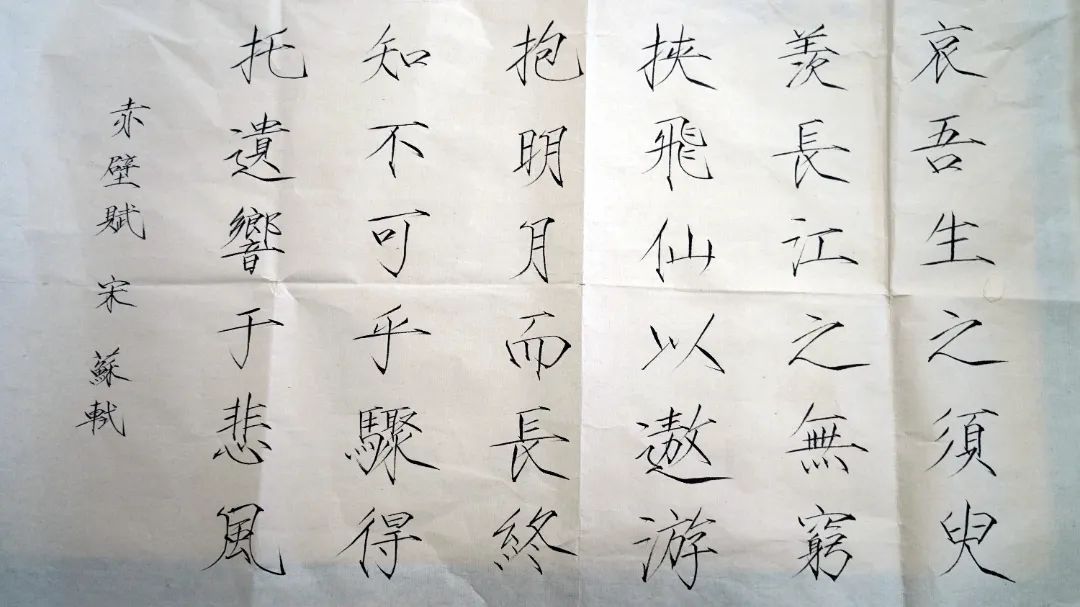 哀吾生之須臾
羨長江之無窮
挾飛仙以遨游
抱明月而長終
知不可乎驟得
托遺響于悲風
赤壁賦 宋 蘇軾